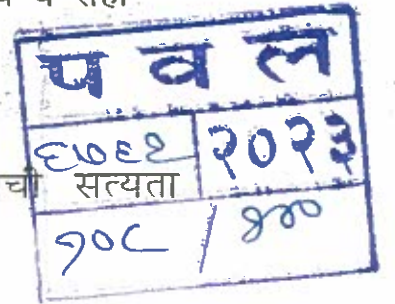 प व ल
६७६२ २०२३
ची सत्यता
१०८ / १४०